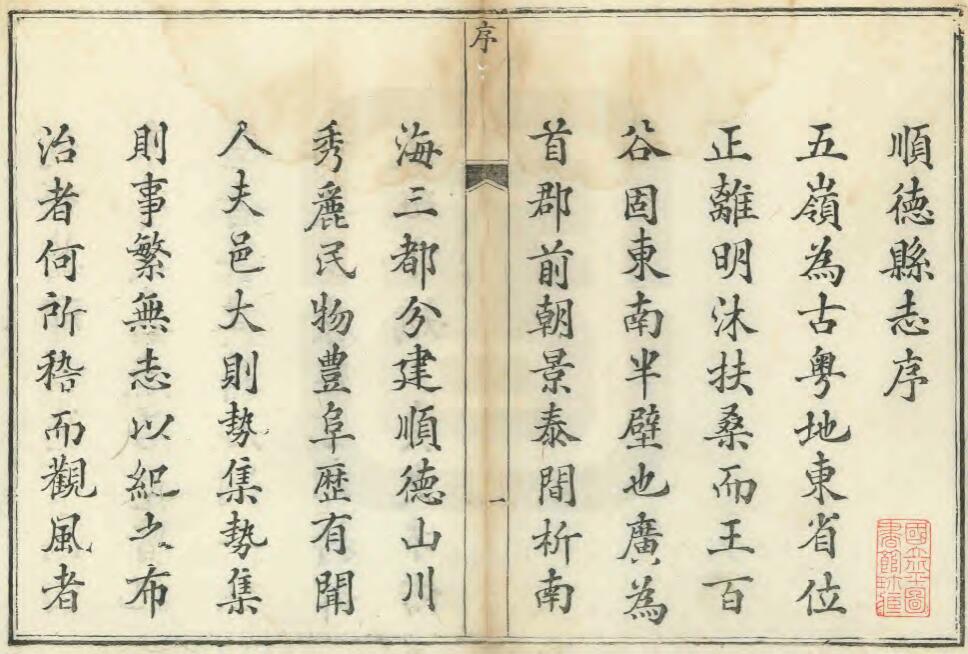 順德縣志序
五嶺為古粤地東省位
正離明沐扶桑而王百
谷固東南半壁也廣為
首郡前朝景泰間析南
序
一
海三都分建順德山川
秀麗民物豊阜歷有聞
人夫邑大則勢集勢集
則事繁無志以紀之布
治者何所稽而觀風者